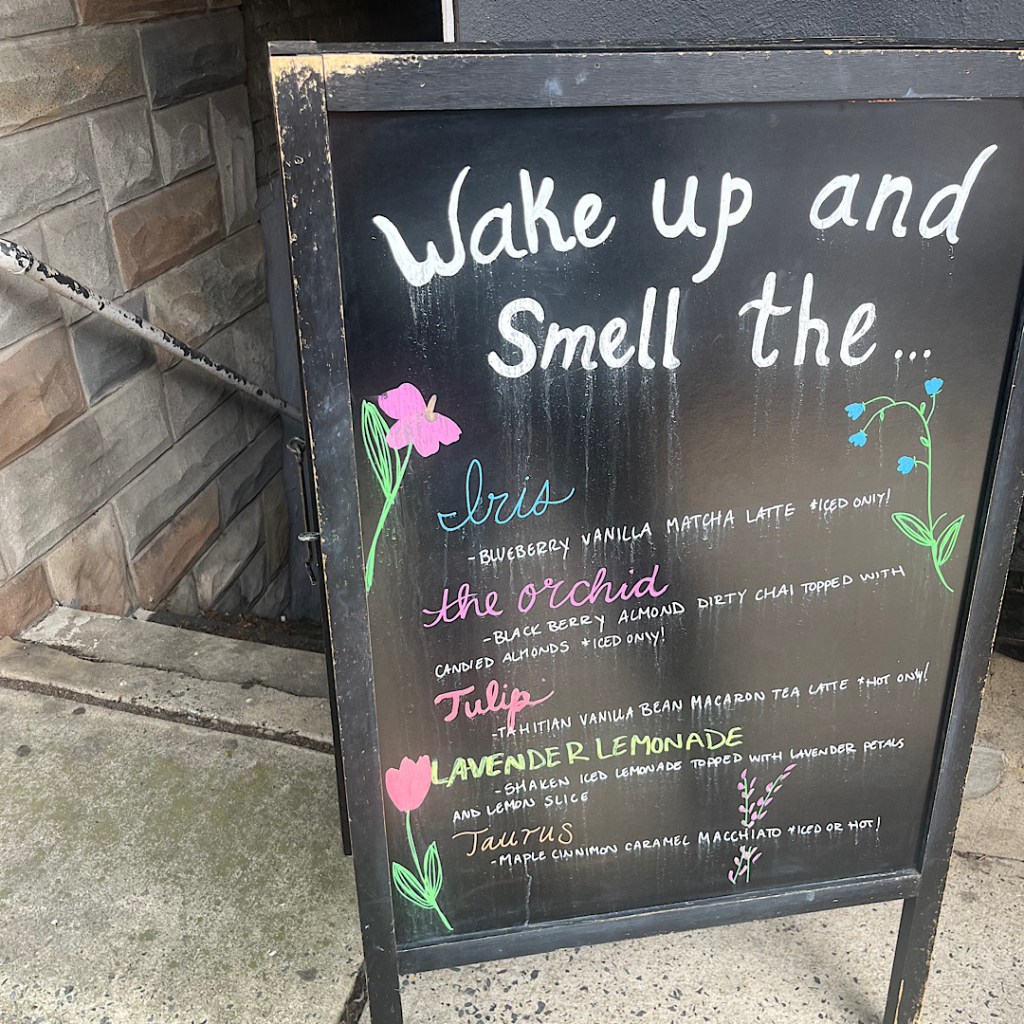 Wake up and
Smell the...
Iris
-BLUEBERRY VANILLA MATCHA LATTE *ICED ONLY!
the orchid
-BLACKBERRY ALMOND DIRTY CHAI TOPPED WITH
CANDIED ALMONDS *ICED ONLY!
Tulip
-TAHITIAN VANILLA BEAN MACARON TEA LATTE *HOT ONLY!
LAVENDER LEMONADE
-SHAKEN ICED LEMONADE TOPPED WITH LAVENDER PETALS
AND LEMON SLICE
Taurus
-MAPLE CINNIMON CARAMEL MACCHIATO *ICED OR HOT!